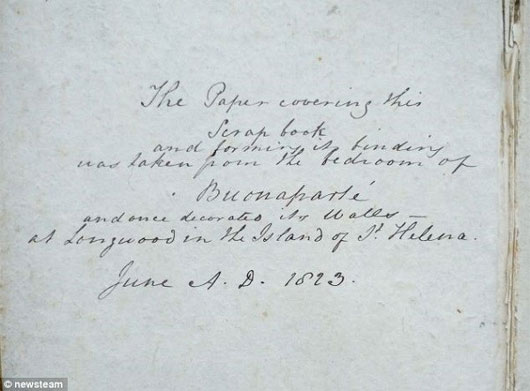 The Paper covering this
Scrap book
and forming its binding
was taken from the bedroom of
Buonaparté
and once decorated its Walls —
at Longwood in the Island of St. Helena.
June A. D. 1823.
© newsteam